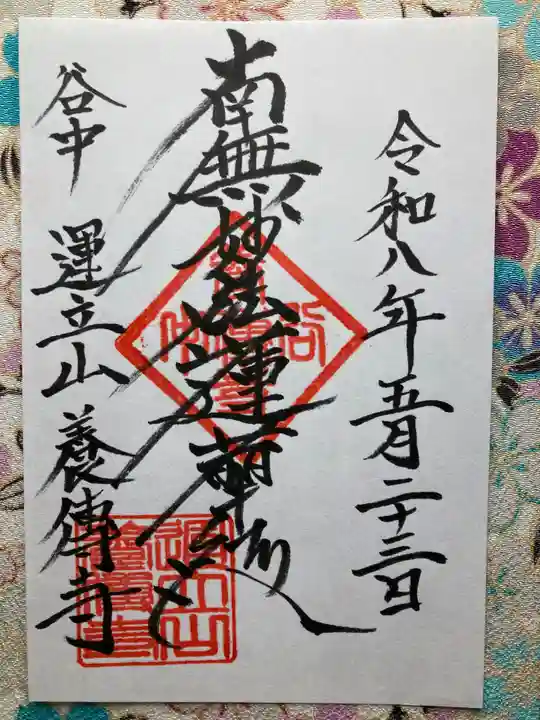 令和八年五月二十三日
南無妙法蓮華経
谷中 運立山 養傳寺